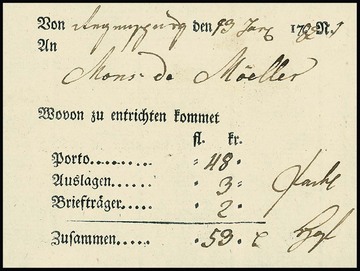 Von Regenspurg den 23 Jary 17 N. 1
An
Mons: de Möeller
Wovon zu entrichten kommet
fl. kr.
Porto........ " 48 "
Auslagen...... " 3 "
Briefträger...... " 2 "
Zusammen...... " 53 "